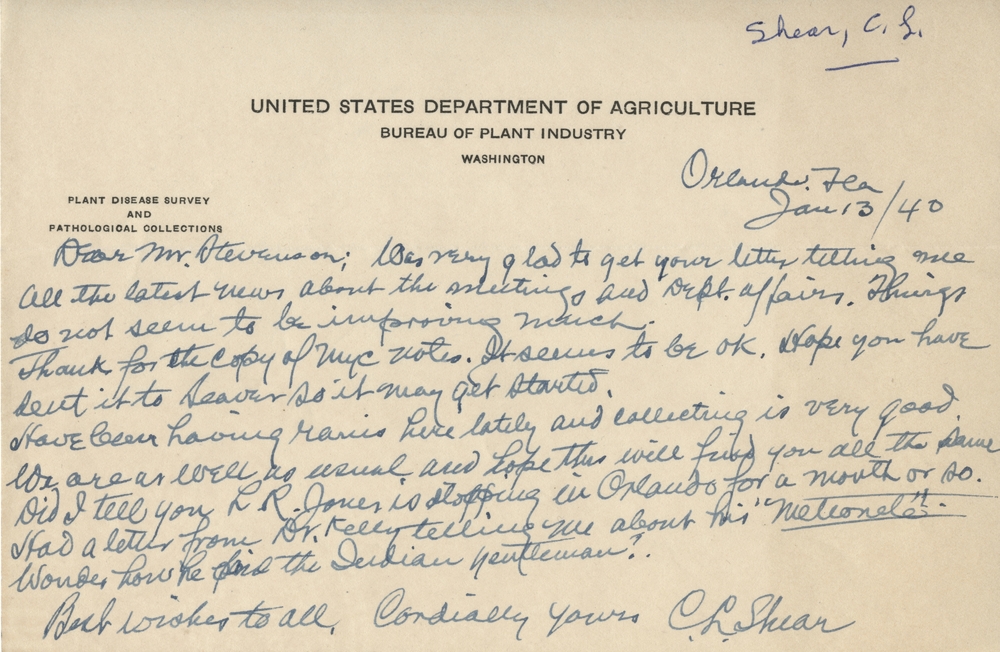 Shear, C. L.
UNITED STATES DEPARTMENT OF AGRICULTURE
BUREAU OF PLANT INDUSTRY
WASHINGTON
Orlando. Fla
Jan 13/40
PLANT DISEASE SURVEY
AND
PATHOLOGICAL COLLECTIONS
Dear Mr. Stevenson; Was very glad to get your letter telling me
all the latest news about the meetings and Dept. affairs. Things
do not seem to be improving much.
Thank for the copy of Myc notes. It seems to be ok. Hope you have
sent it to Seaver so it may get started.
Have been having rains here lately and collecting is very good.
We are as well as usual and hope this will find you all the same
Did I tell you L R. Jones is stopping in Orlando for a month or so.
Had a letter from Dr. Kelly telling me about his
Wonder how he the Indian gentleman?.
Best wishes to all. Cordially yours C. L. Shear